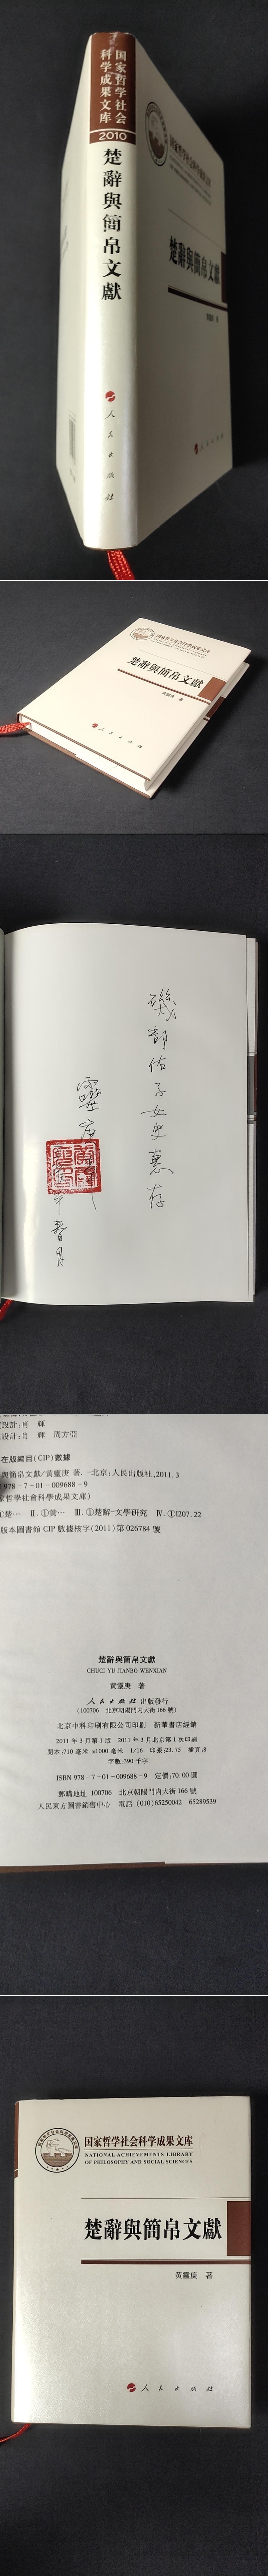 国家哲学社会
科学成果文库
2010
楚辭與簡帛文獻
人民出版社
国家哲学社会科学成果文库
楚辭與簡帛文獻
黄靈庚 著
人民出版社
国家哲学社会科学成果文库
楚辭與簡帛文獻
黄靈庚 著
人民出版社
磯部佑子女史惠存
靈庚
春月
設計:肖 輝
設計:肖 輝 周方亞
在版編目(CIP)數據
與簡帛文獻/黄靈庚 著.-北京:人民出版社,2011.3
978-7-01-009688-9
家哲學社會科學成果文庫)
①楚… Ⅱ.①黄… Ⅲ.①楚辭-文學研究 Ⅳ.①I207.22
版本圖書館 CIP 數據核字(2011)第 026784 號
楚辭與簡帛文獻
CHUCI YU JIANBO WENXIAN
黄靈庚 著
人民出版社 出版發行
(100706 北京朝陽門内大街 166 號)
北京中科印刷有限公司印刷 新華書店經銷
2011 年 3 月第 1 版 2011 年 3 月北京第 1 次印刷
開本:710 毫米 ×1000 毫米 1/16 印張:23.75 插頁:8
字數:390 千字
ISBN 978-7-01-009688-9 定價:70.00 圓
郵購地址 100706 北京朝陽門内大街 166 號
人民東方圖書銷售中心 電話 (010)65250042 65289539
国家哲学社会科学成果文库
NATIONAL ACHIEVEMENTS LIBRARY
OF PHILOSOPHY AND SOCIAL SCIENCES
楚辭與簡帛文獻
黄靈庚 著
人民出版社